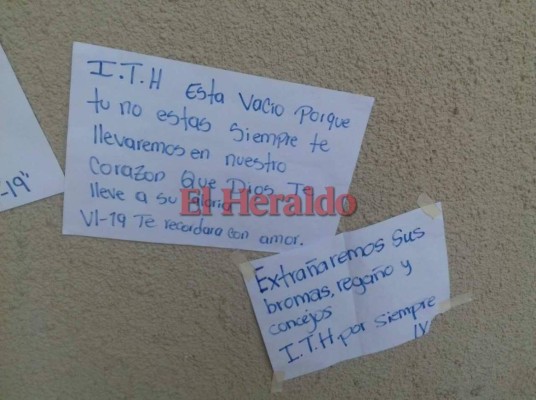 I.T.H Esta vacio Porque
tu no estas siempre te
llevaremos en nuestro
corazon Que Dios Te
lleve a su Gloria
VI-19 Te recordara con amor.
-19"
El Heraldo
Extrañaremos sus
bromas, regaño y
concejos
I.T.H por siempre